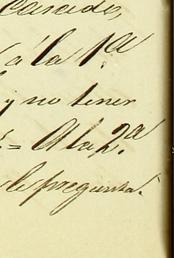 Casado,
á la 1ª
y no tener
= A la 2ª
le pregunta.